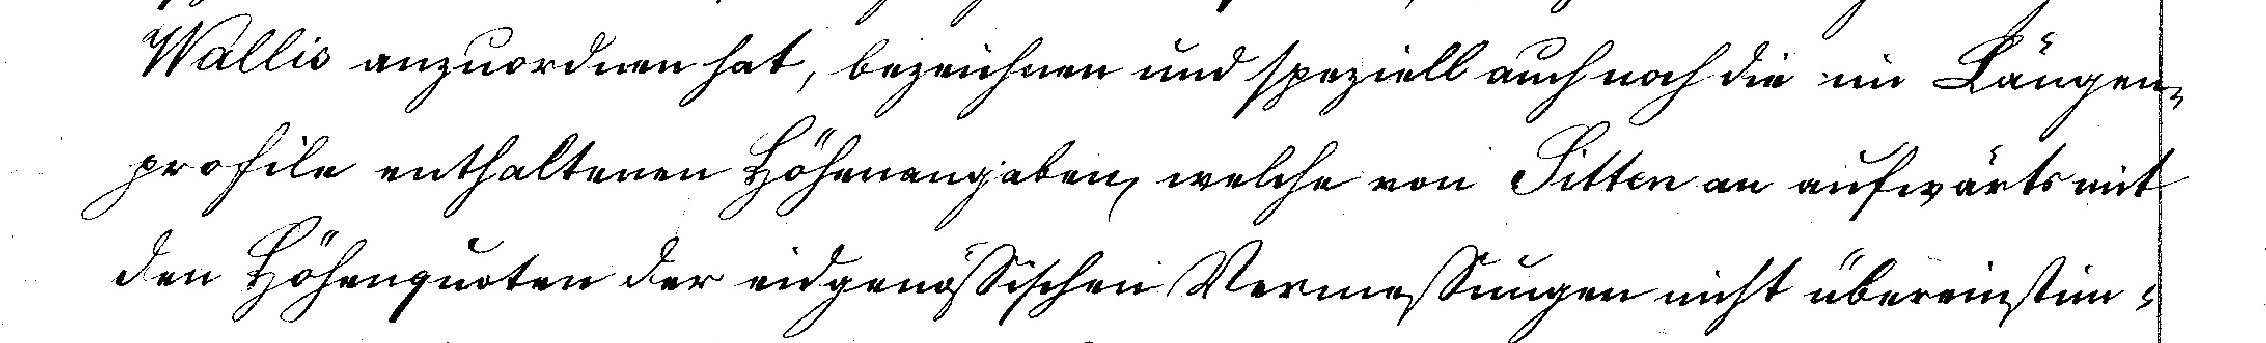 Wallis anzuordnen hat, bezeichnen und speziell auch noch die im Längen-
profile enthaltenen Höhenangaben, welche von Sitten an aufwärts mit
den Höhenquoten der eidgenössischen Vermessungen nicht übereinstim-